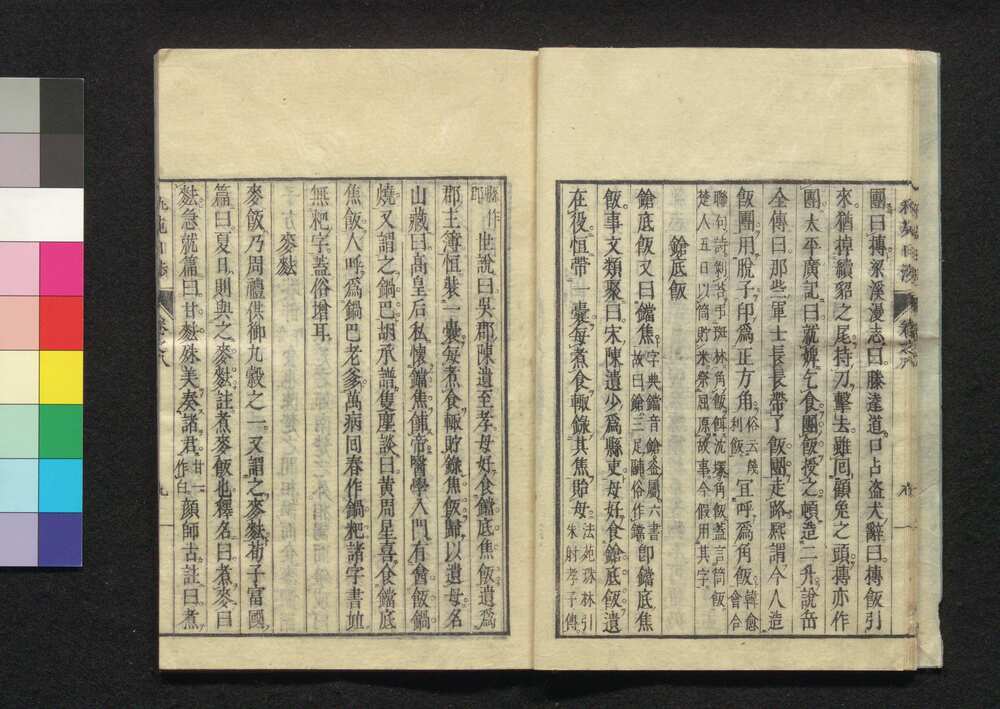 團曰摶絮溪漫志曰滕達道口占盗犬辭曰摶飯引
來猶掉續貂之尾持刀擊去難回顧兔之頭摶亦作
團太平廣記曰就婢乞食團飯授之頓造二升說岳
全傳曰那些軍士長長帶了飯團走路熙謂今人造
飯團用脫子印爲正方角俗云模利飯宜呼爲角飯韓愈會合
聯句詩剝苔弔斑林角飯餌沈塚角飯蓋言筒飯
楚人五日以筒貯米祭屈原故事今假用其字
鎗底飯
鎗底飯又曰鐺焦字典鐺音鎗釜屬六書故曰鎗三足鬴俗作鐺卽鐺底焦
飯事文類聚曰宋陳遺少爲縣吏母好食鎗底飯遺
在役恒帶一囊每煮食輒錄其焦貽母法苑珠林引朱射孝子傳
縣作郡世說曰吳郡陳遺至孝母好食鐺底焦飯遺爲
郡主簿恒裝一囊每煮食輒貯錄焦飯歸以遺母名
山藏曰高皇后私懷鐺焦餔帝醫學入門有會飯鍋
燒又謂之鍋巴胡承譜隻塵談曰黃周星喜食鐺底
焦飯人呼爲鍋巴老爹萬病回春作鍋粑諸字書竝
無粑字蓋俗增耳
麥麮
麥飯乃周禮供御九穀之一又謂之麥麮荀子富國
篇曰夏日則與之麥麮註煮麥飯也釋名曰煮麥曰
麮急就篇曰甘麮殊美奏諸君甘一作白顏師古註曰煮
卷之八
九